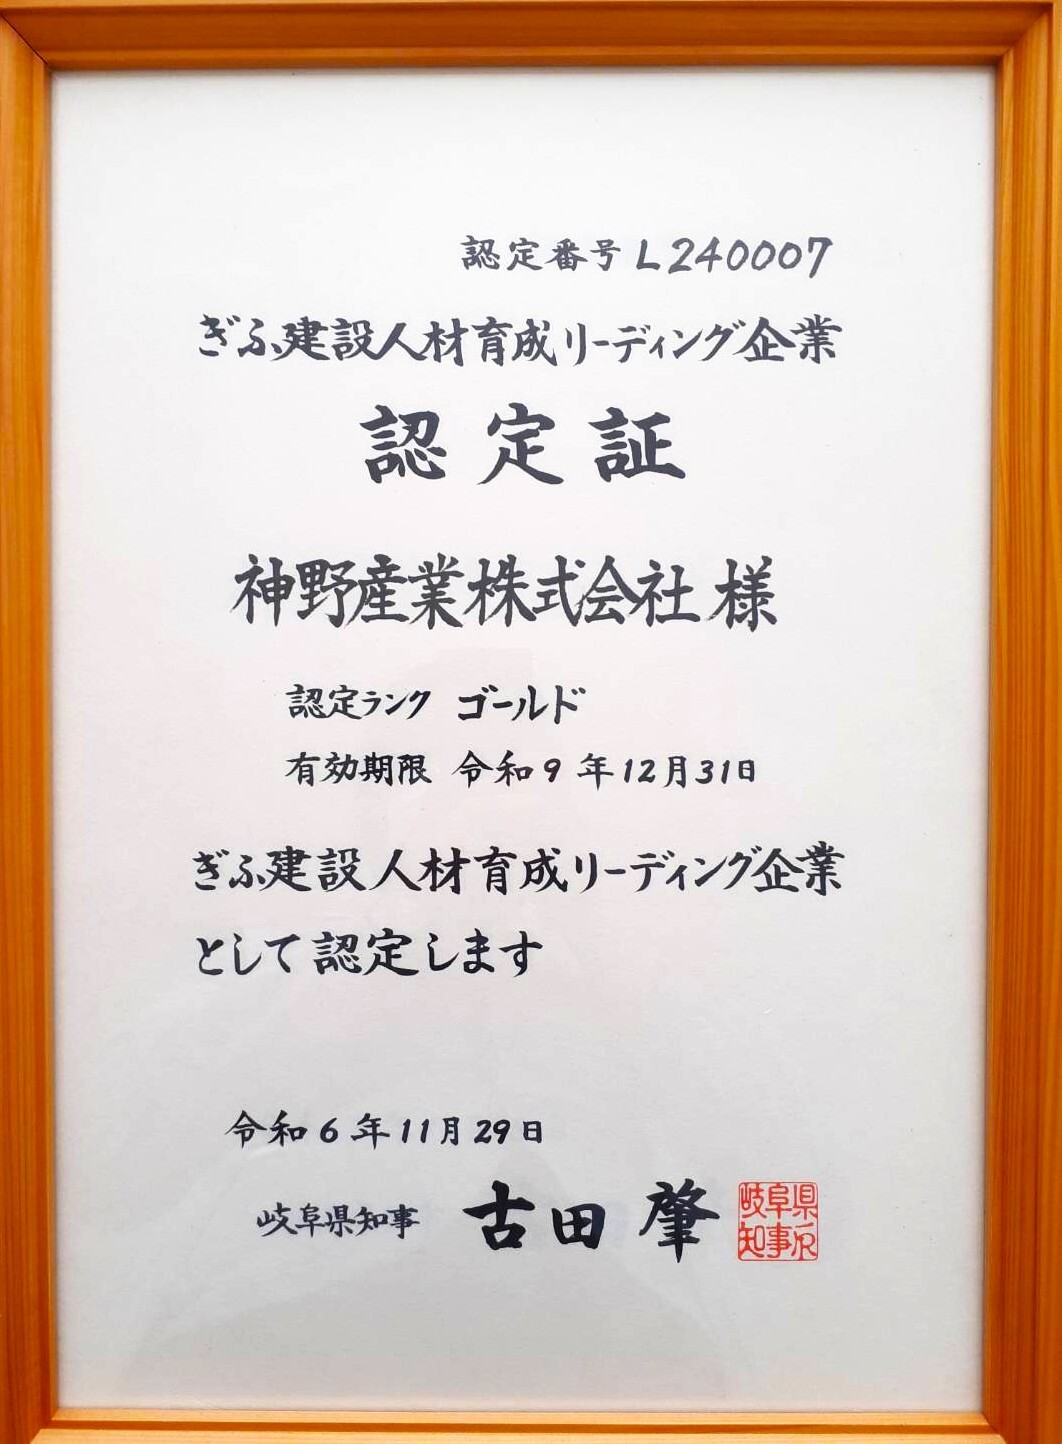 認定番号 L240007
ぎふ建設人材育成リーディング企業
認定証
神野産業株式会社 様
認定ランク ゴールド
有効期限 令和9年12月31日
ぎふ建設人材育成リーディング企業
として認定します
令和6年11月29日
岐阜県知事 古田 肇
岐阜県
知事印